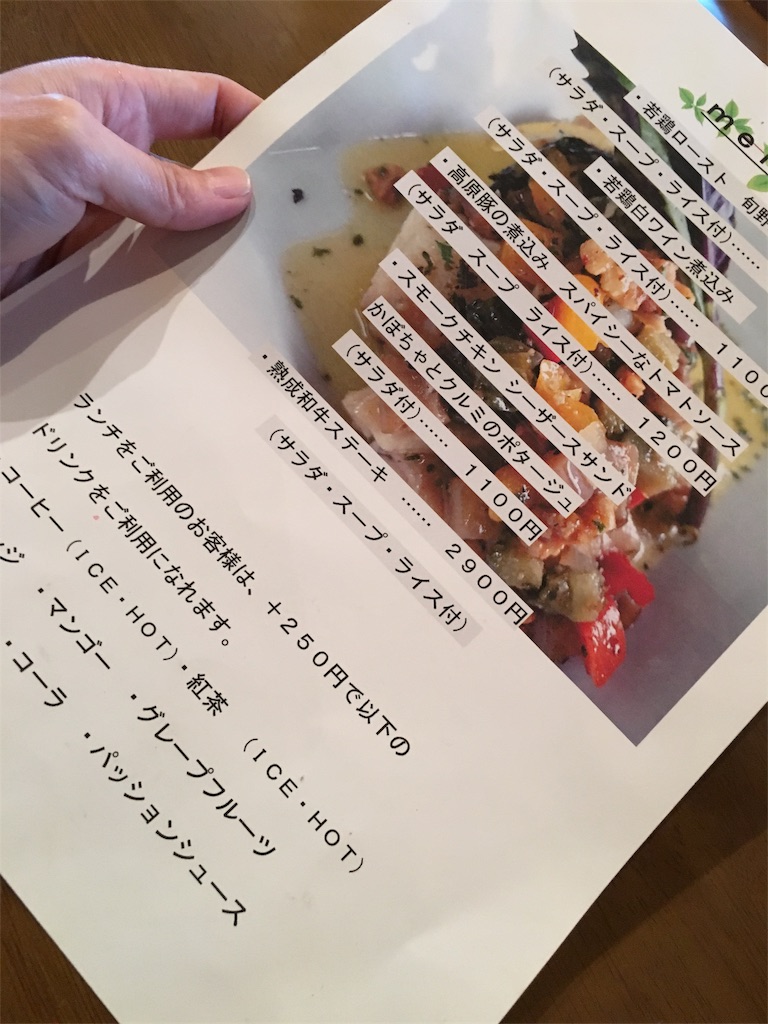 ・若鶏ロースト 旬野
(サラダ・スープ・ライス付)……
・若鶏白ワイン煮込み
(サラダ・スープ・ライス付)…… 1100
・高原豚の煮込み スパイシーなトマトソース
(サラダ スープ ライス付)…… 1200円
・スモークチキン シーザーサンド
かぼちゃとクルミのポタージュ
(サラダ付)…… 1100円
・熟成和牛ステーキ …… 2900円
(サラダ・スープ・ライス付)
ランチをご利用のお客様は、+250円で以下の
ドリンクをご利用になれます。
コーヒー(ICE・HOT)・紅茶 (ICE・HOT)
ジ ・マンゴー ・グレープフルーツ
・コーラ ・パッションジュース